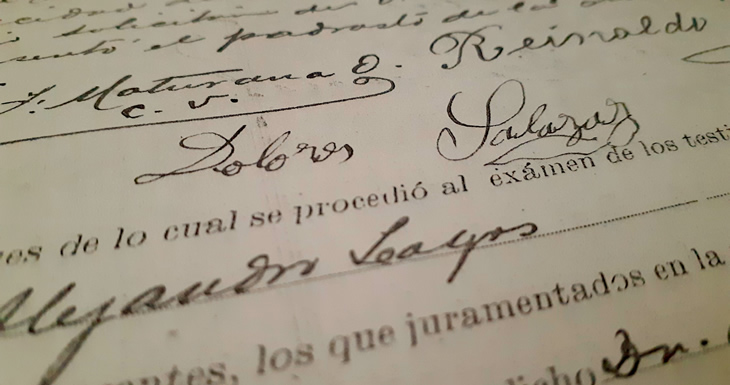 solicitan de
sentó el padrasto de la
J. Maturana O. Reinaldo
C. V.
Dolores Salazar
es de lo cual se procedió al exámen de los testi
Alejandro
antes, los que juramentados en la
dicho Dn.